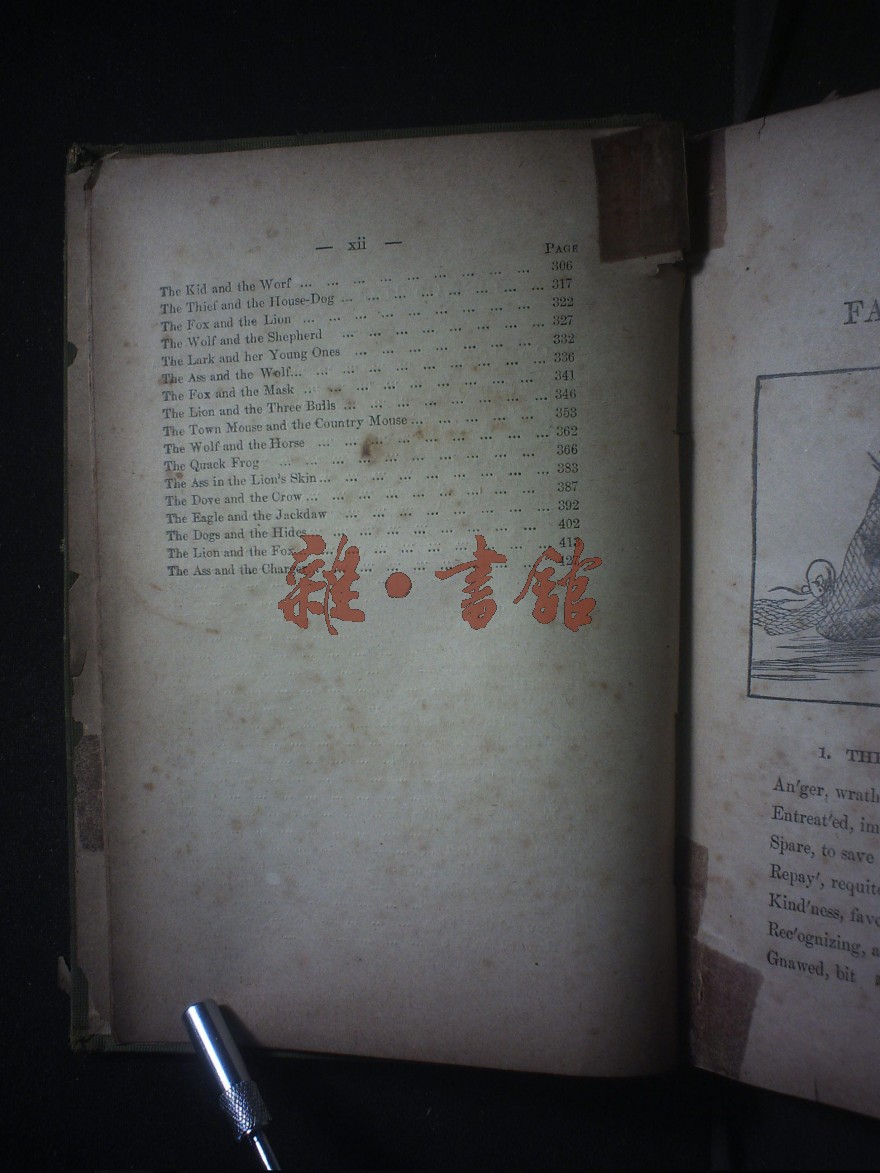 — xii —
PAGE
The Kid and the Worf ... ... ... ... ... ... ... ... ... 306
The Thief and the House-Dog ... ... ... ... ... ... ... ... 317
The Fox and the Lion ... ... ... ... ... ... ... ... ... 322
The Wolf and the Shepherd ... ... ... ... ... ... ... ... 327
The Lark and her Young Ones ... ... ... ... ... ... ... 332
The Ass and the Wolf... ... ... ... ... ... ... ... ... ... 336
The Fox and the Mask ... ... ... ... ... ... ... ... ... 341
The Lion and the Three Bulls ... ... ... ... ... ... ... ... 346
The Town Mouse and the Country Mouse ... ... ... ... ... 353
The Wolf and the Horse ... ... ... ... ... ... ... ... ... 362
The Quack Frog ... ... ... ... ... ... ... ... ... ... 366
The Ass in the Lion's Skin ... ... ... ... ... ... ... ... ... 383
The Dove and the Crow ... ... ... ... ... ... ... ... ... 387
The Eagle and the Jackdaw ... ... ... ... ... ... ... ... 392
The Dogs and the Hides ... ... ... ... ... ... ... ... 402
The Lion and the Fox ... ... ... ... ... ... ... ... ... 413
The Ass and the Charger ... ... ... ... ... ... ... ...
雜·書館
FA
1. THE
An'ger, wrath
Entreat'ed, im
Spare, to save
Repay', requite
Kind'ness, favo
Rec'ognizing, a
Gnawed, bit